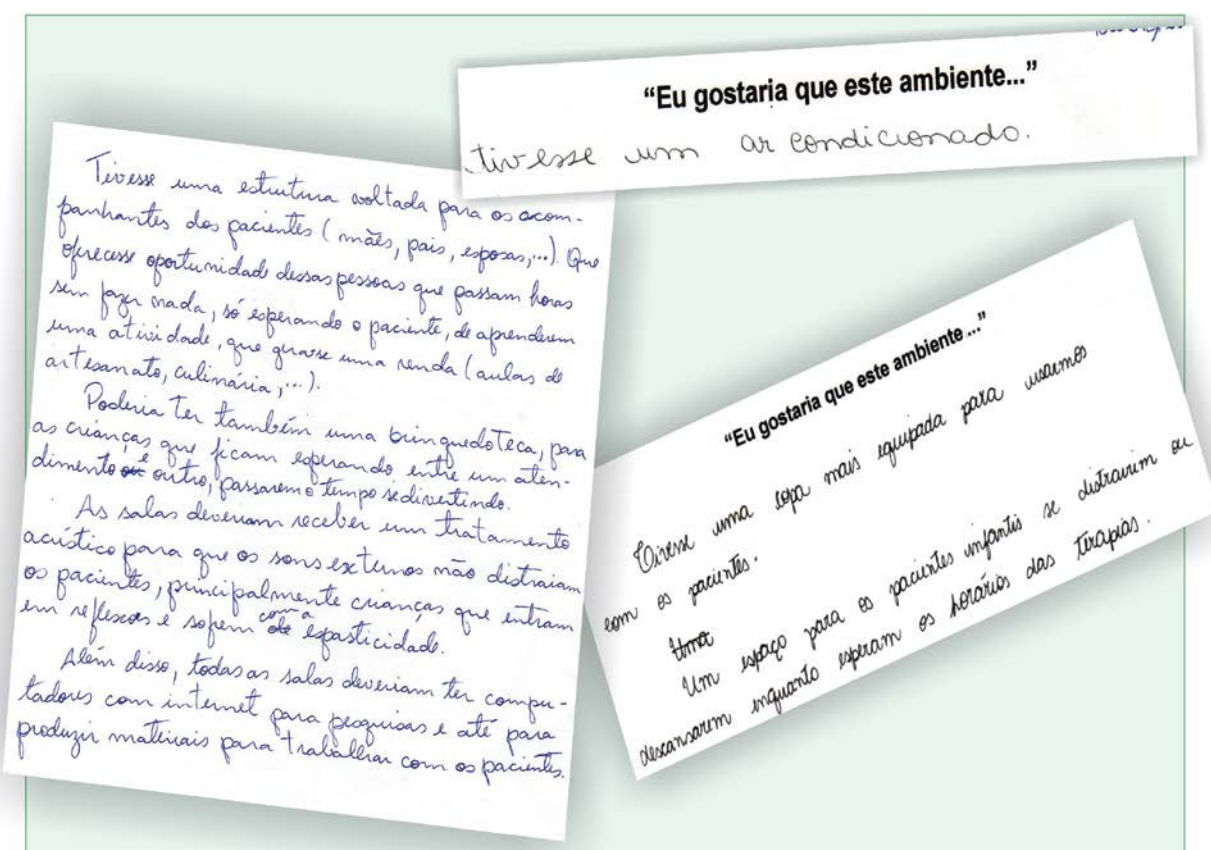 "Eu gostaria que este ambiente..."
tivesse um ar condicionado.
Tivesse uma estrutura voltada para os acom-
panhantes dos pacientes (mães, pais, esposas,...). Que
oferecesse oportunidade dessas pessoas que passam horas
sem fazer nada, só esperando o paciente, de aprenderem
uma atividade, que gerasse uma renda (aulas de
artesanato, culinária,...).
Poderia ter também uma brinquedoteca, para
as crianças que ficam esperando entre um aten-
dimento e outro, passarem o tempo se divertindo.
As salas deveriam receber um tratamento
acústico para que os sons externos não distraiam
os pacientes, principalmente crianças que entram
em reflexos e sofrem com a espasticidade.
Além disso, todas as salas deveriam ter compu-
tadores com internet para pesquisas e até para
produzir materiais para trabalhar com os pacientes.
"Eu gostaria que este ambiente ..."
Tivesse uma copa mais equipada para usarmos
com os pacientes.
Uma
Um espaço para os pacientes infantis se distrairem ou
descansarem enquanto esperam os horários das terapias.